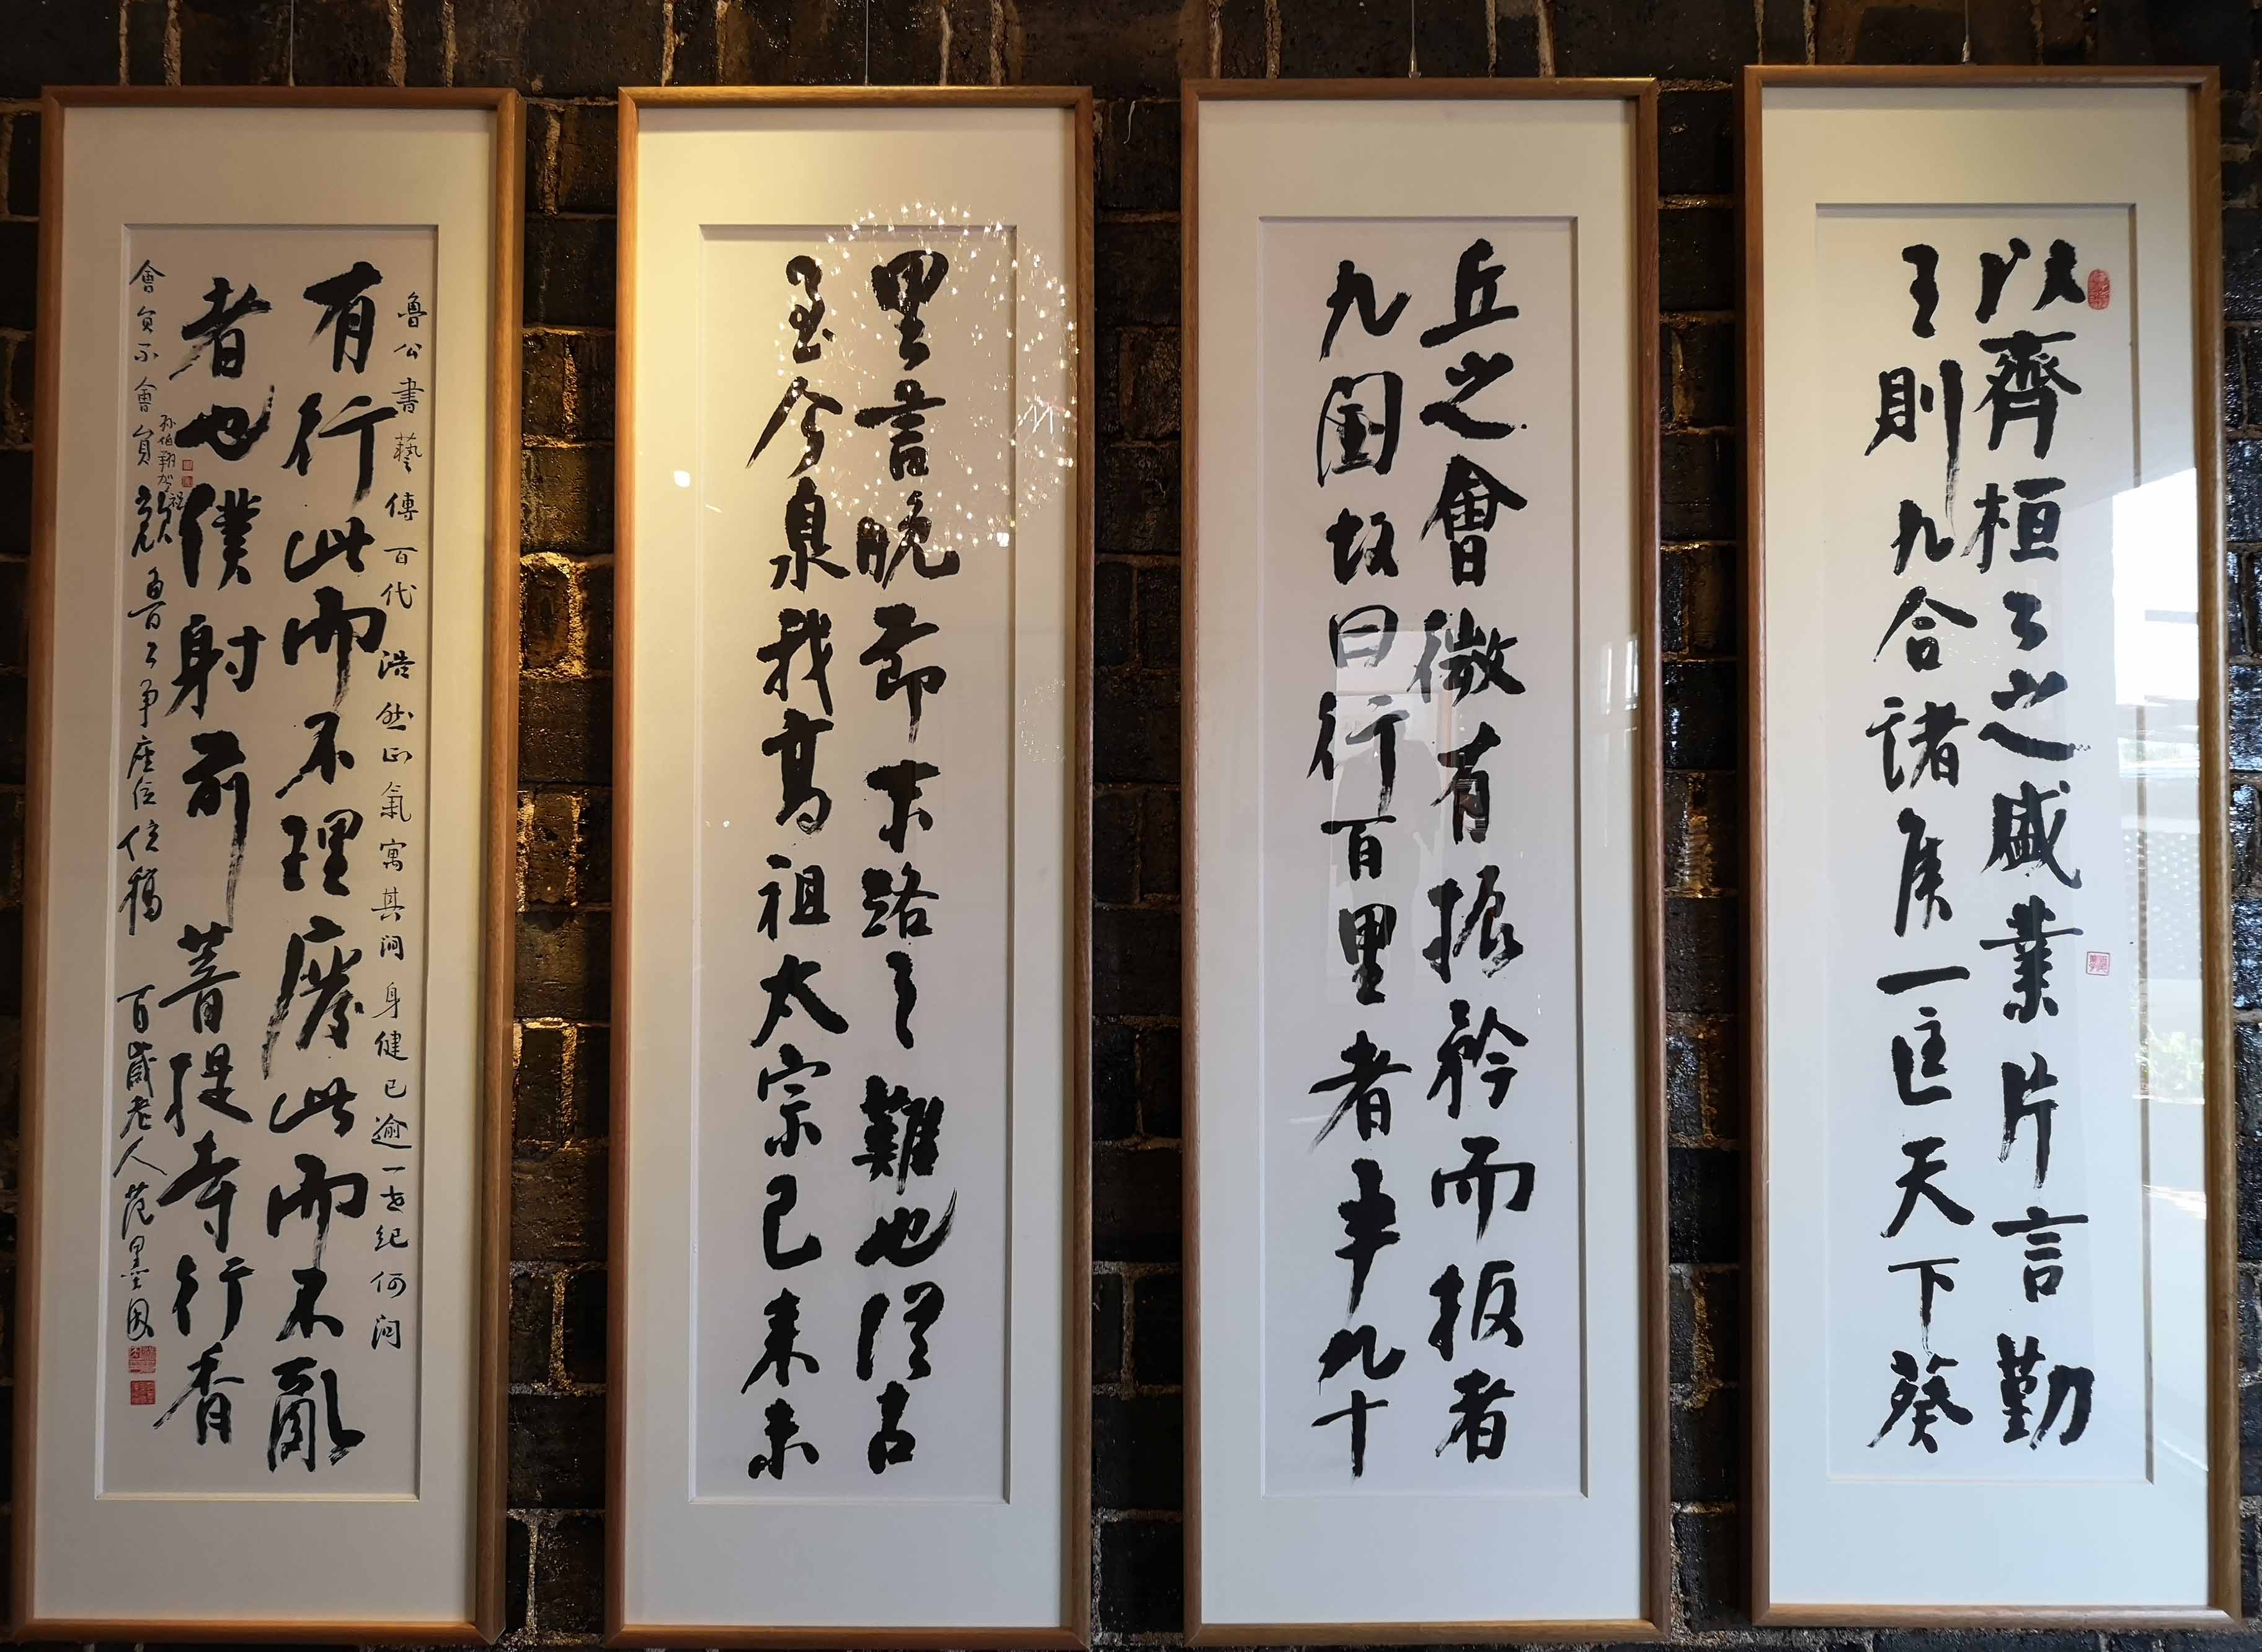 以齊桓公之盛業片言勤
王則九合諸侯一匡天下葵
丘之會微有振矜而叛者
九國故曰行百里者半九十
里言晚節末路之難也從古
至今泉我高祖太宗已來未
有行此而不理廢此而不亂
者也僕射前菩提寺行香
魯公書藝傳百代浩然正氣寓其间身健已逾一世纪何问
會員不會員顏魯公争座位位稿 百歲老人范墨因
孙伯翔